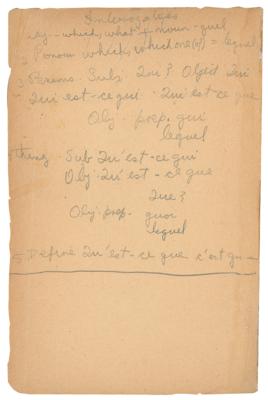 Interrogatives
adj - which, what + noun - quel
2 Pronoun which, which one (of) = lequel
3 Persons Subj Qui? Obj Qui
Qui est-ce qui Qui est-ce que
Obj. prep. qui
lequel
thing. Sub Qu'est-ce qui
Obj Qu'est-ce que
Que?
Obj. prep. quoi
lequel
5. Define Qu'est-ce que c'est qu-